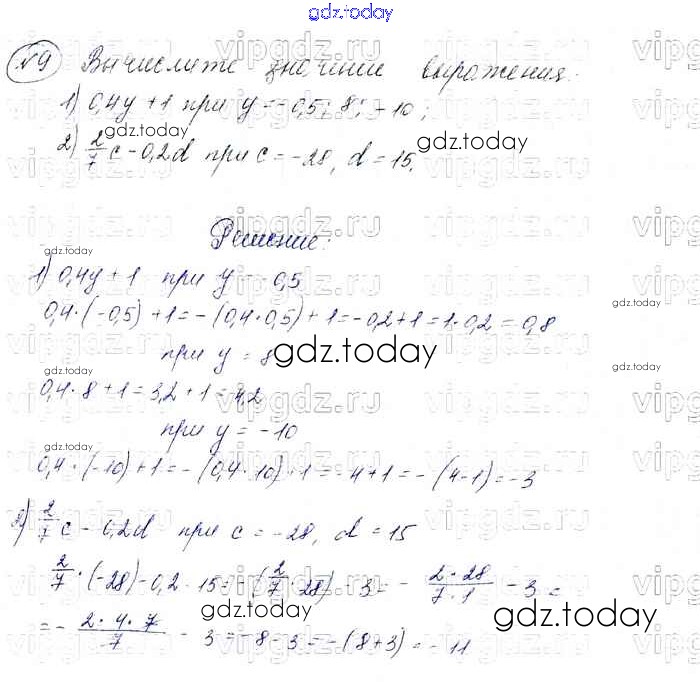 gdz.today
№9 Вычислите значение выражения:
1) 0,4y + 1 при y = -0,5; 8; -10;
gdz.today
2) 2/7 c - 0,2d при c = -28, d = 15.
gdz.today
Решение:
gdz.today
1) 0,4y + 1 при y = 0,5
gdz.today
0,4 · (-0,5) + 1 = -(0,4 · 0,5) + 1 = -0,2 + 1 = 1 · 0,2 = 0,8
при y = 8
gdz.today
0,4 · 8 + 1 = 3,2 + 1 = 4,2
при y = -10
gdz.today
0,4 · (-10) + 1 = -(0,4 · 10) + 1 = -4 + 1 = -(4-1) = -3
gdz.today
2) 2/7 c - 0,2d при c = -28, d = 15
2/7 · (-28) - 0,2 · 15 = -(2/7 · 28) - 3 = - (2 · 28)/(7 · 1) - 3 =
gdz.today
gdz.today
= - (2 · 4 · 7)/7 - 3 = -8 - 3 = -(8+3) = -11